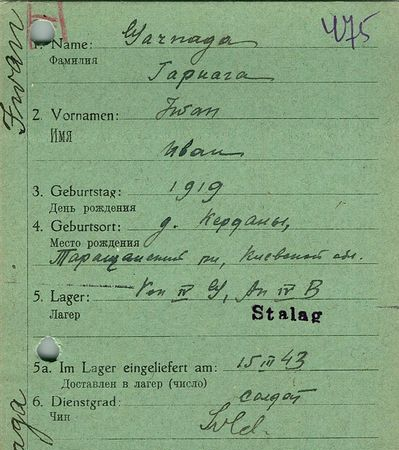 475
1. Name: Гarnaga
Фамилия
Гарнага
2. Vornamen: Iwan
ИМЯ
Иван
3. Geburtstag: 1919
День рождения
4. Geburtsort: д. Керданы,
Место рождения
Таращанский рн, Киевской обл.
5. Lager: Von IV G, An IV B
Лагер
Stalag
5a. Im Lager eingeliefert am: 15 III 43
Доставлен в лагер (число)
6. Dienstgrad: солдат
Чин
Sold.
Iwan